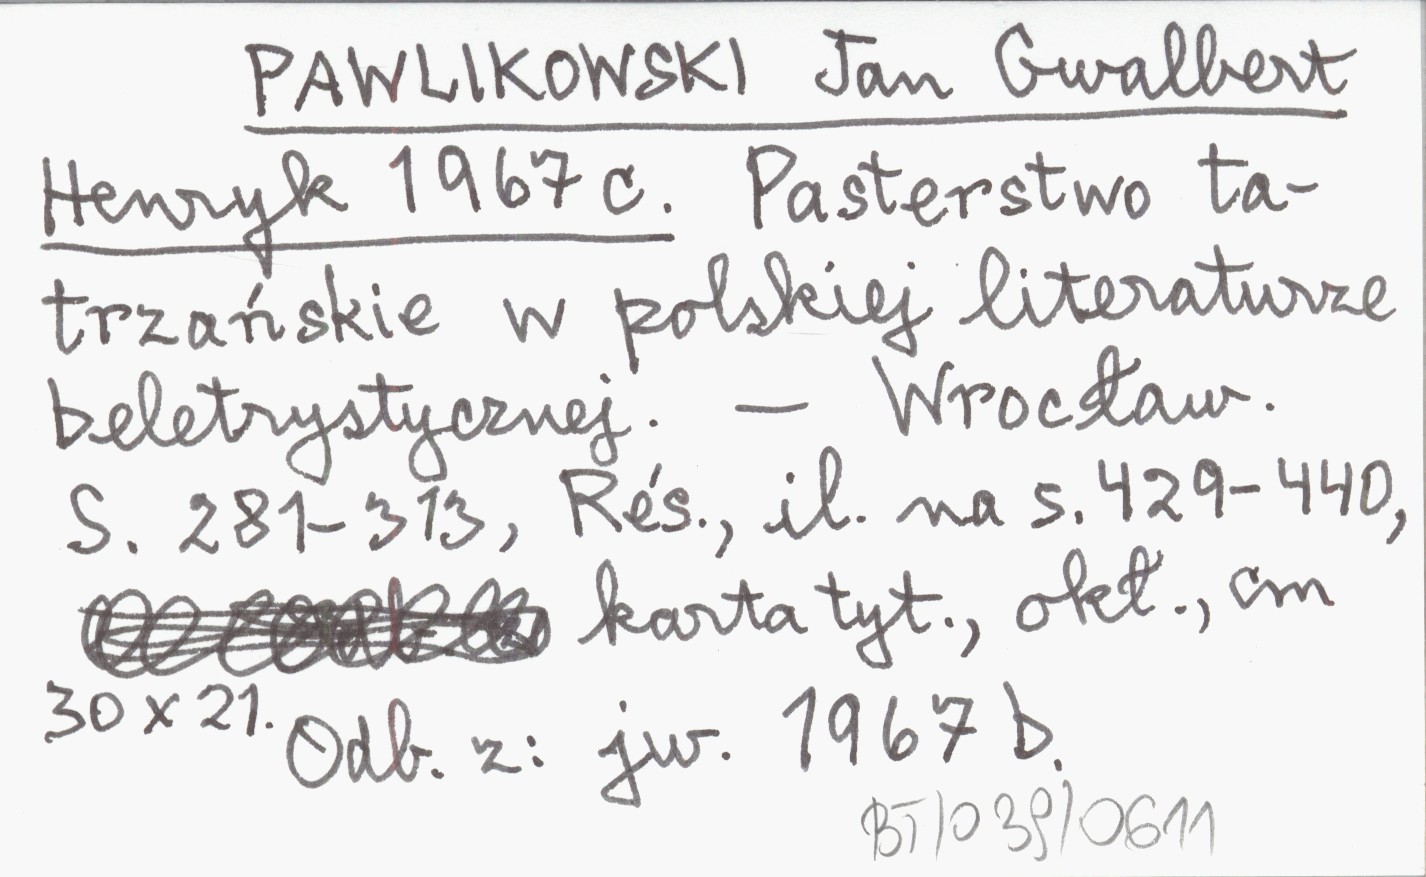 PAWLIKOWSKI Jan Gwalbert
Henryk 1967 c. Pasterstwo ta-
trzańskie w polskiej literaturze
beletrystycznej. — Wrocław.
S. 281-313, Rés., il. na s. 429-440,
karta tyt., okł., cm
30 x 21. Odb. z: jw. 1967 b.
BT/039/0611